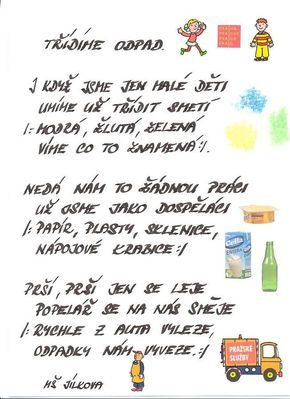 TŘÍDÍME ODPAD.
PRAHA
PRAGUE
PRAGA
PRAG
I KDYŽ JSME JEN MALÉ DĚTI
UMÍME UŽ TŘÍDIT SMETÍ
/: MODRÁ, ŽLUTÁ, ZELENÁ
VÍME CO TO ZNAMENÁ :/.
NEDÁ NÁM TO ŽÁDNOU PRÁCI
UŽ JSME JAKO DOSPĚLÁCI
/: PAPÍR, PLASTY, SKLENICE,
NÁPOJOVÉ KRABICE :/
PRŠÍ, PRŠÍ JEN SE LEJE
POPELÁŘ SE NA NÁS SMĚJE
/: RYCHLE Z AUTA VYLEZE,
ODPADKY NÁM VYVEZE. :/
PRAŽSKÉ
SLUŽBY
MŠ JÍLKOVA